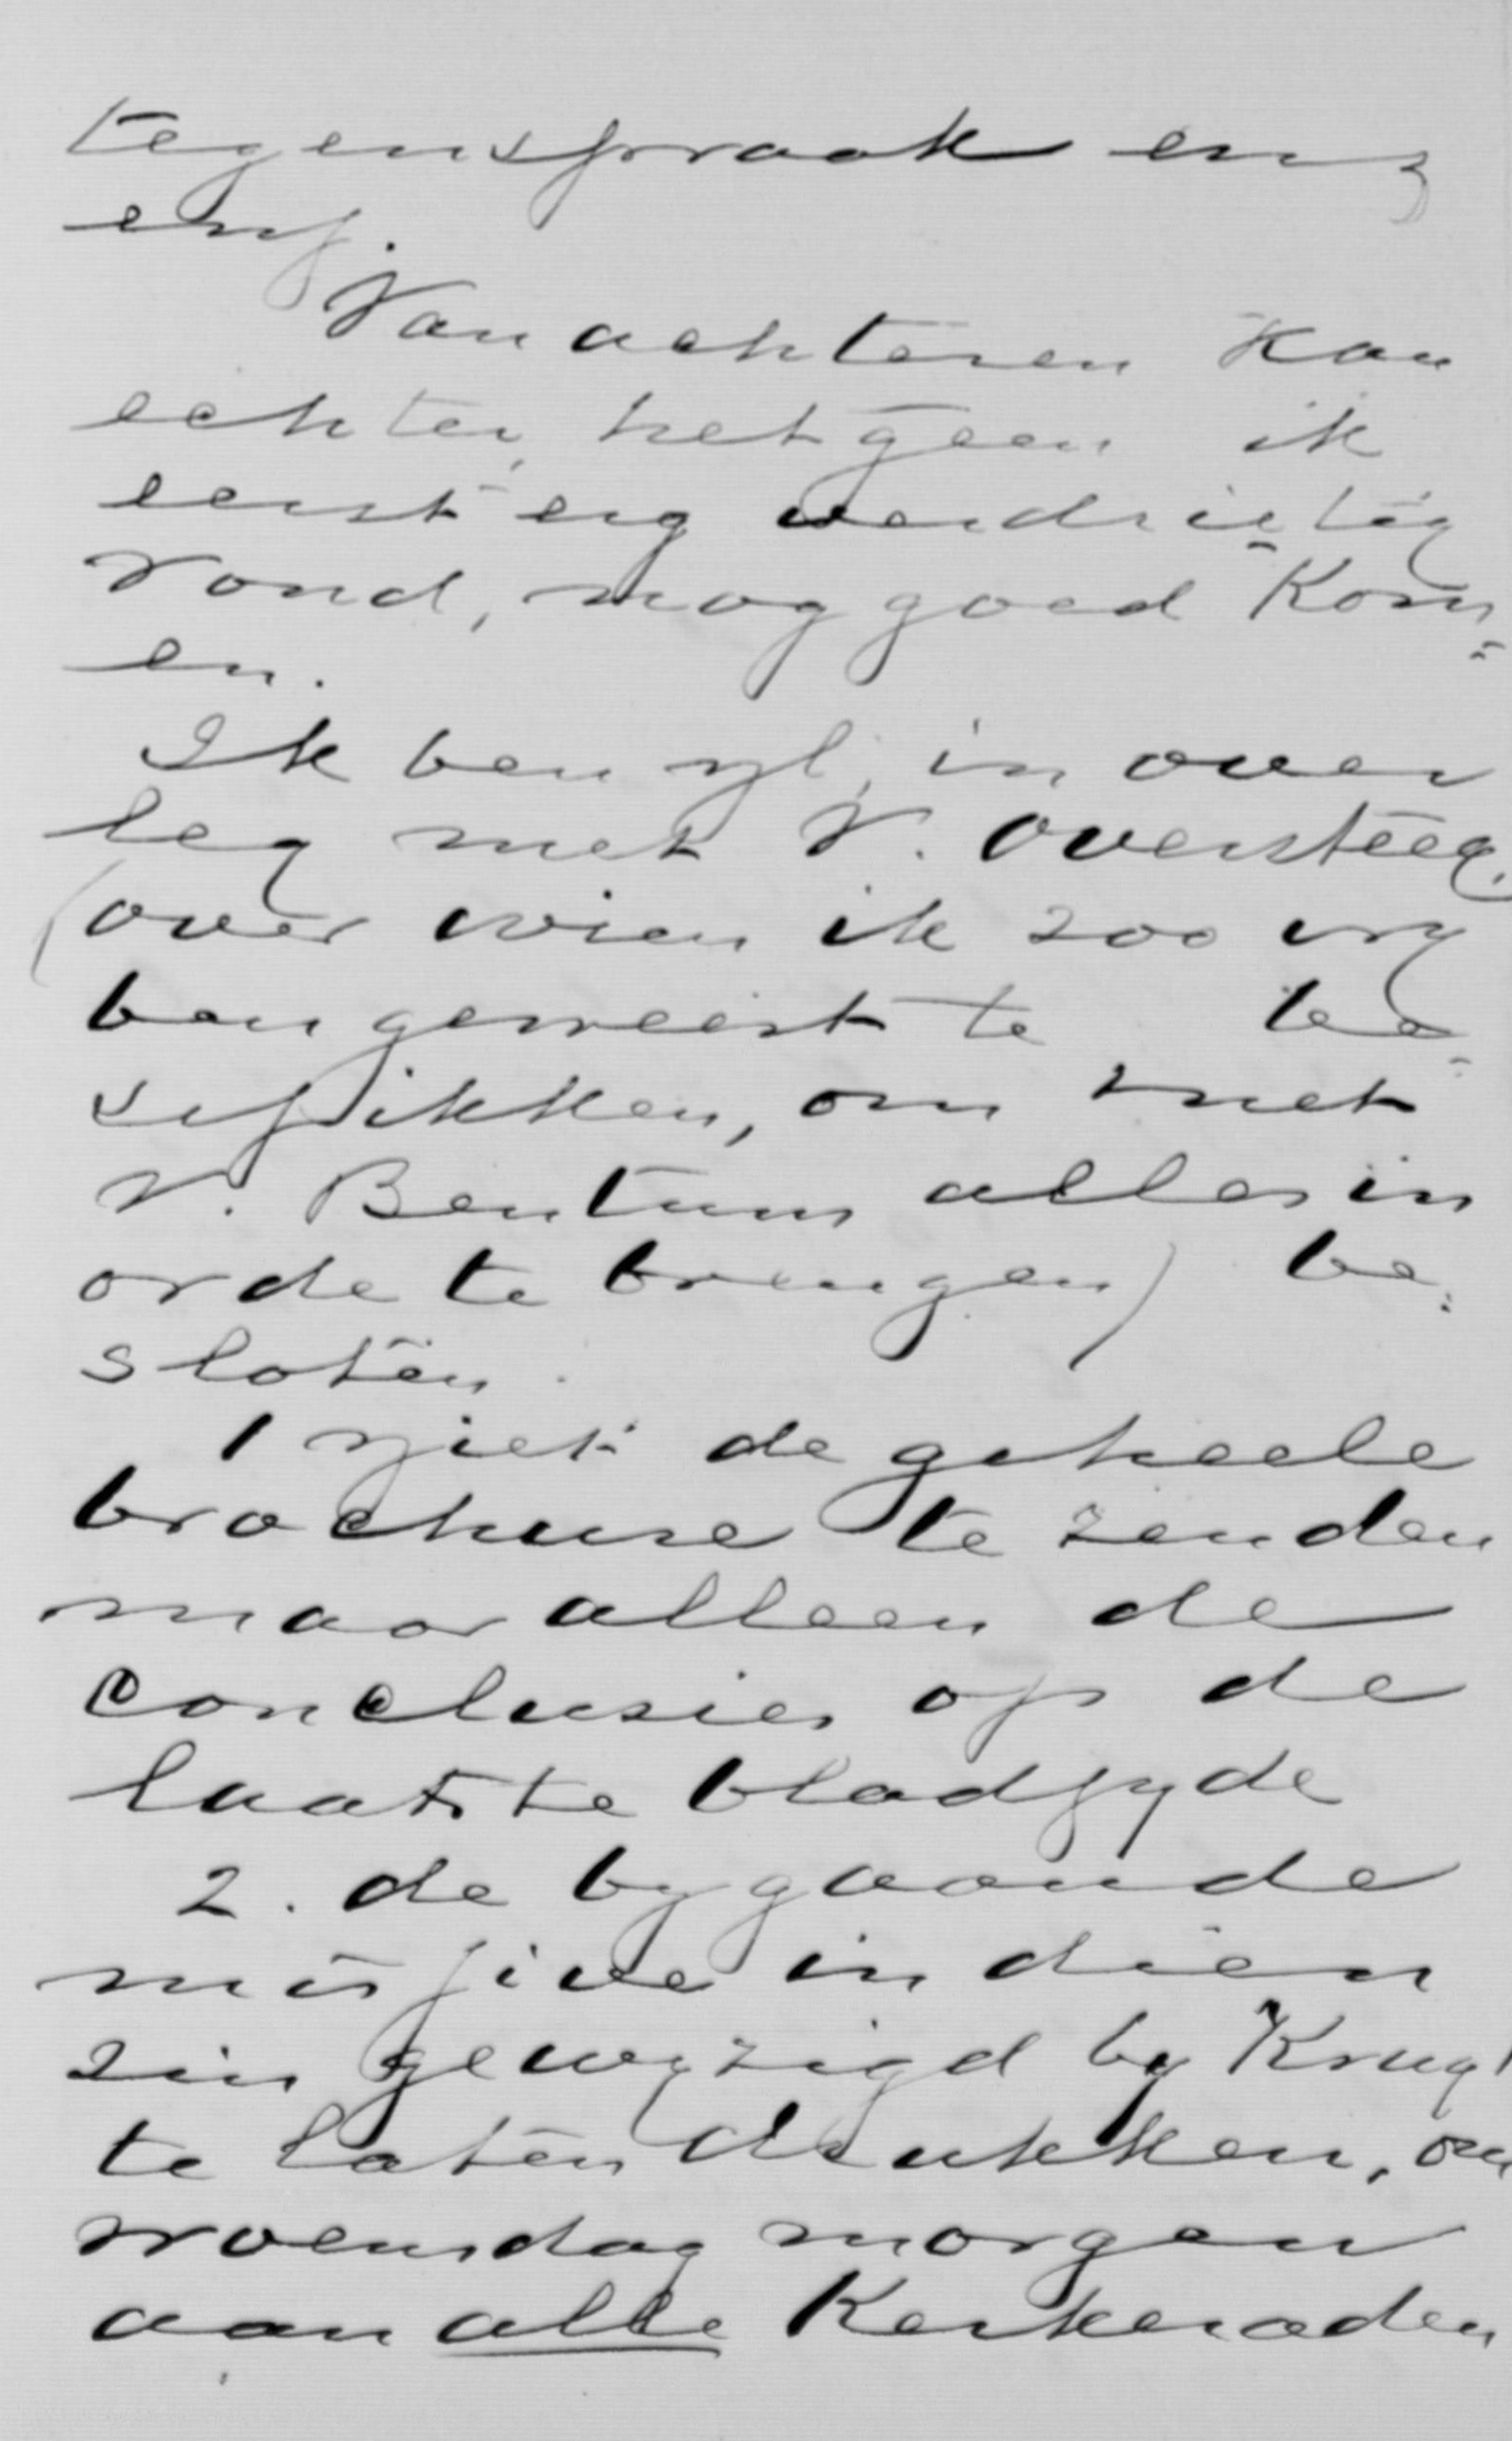 tegenspraak enz
enz.
Van achteren kan
echter, hetgeen ik
eerst erg verdrietig
vond, nog goed kom=
en.
Ik ben nl, in over
leg met V. Oversteeg
(over wien ik zoo vry
ben geweest te be=
schikken, om met
V. Bentum alles in
orde te brengen) be=
sloten.
1 niet de geheele
brochure te zenden
maar alleen de
conclusies op de
laatste bladzyde
2. de bygaande
missive in dien
zin gewyzigd by
te laten drukken, om
woensdag morgen
aan alle Kerkeraden